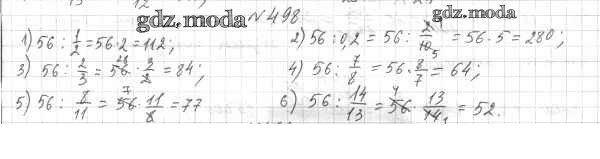 №498
gdz.moda gdz.moda
1) 56 : 1/2 = 56·2 = 112; 2) 56 : 0,2 = 56 : 2/10 5 = 56·5 = 280;
3) 56 : 2/3 = 56 28 · 3/2 = 84; 4) 56 : 7/8 = 56 · 8/7 = 64;
5) 56 : 8/11 = 56 7 · 11/8 = 77 6) 56 : 14/13 = 56 4 · 13/14 1 = 52.